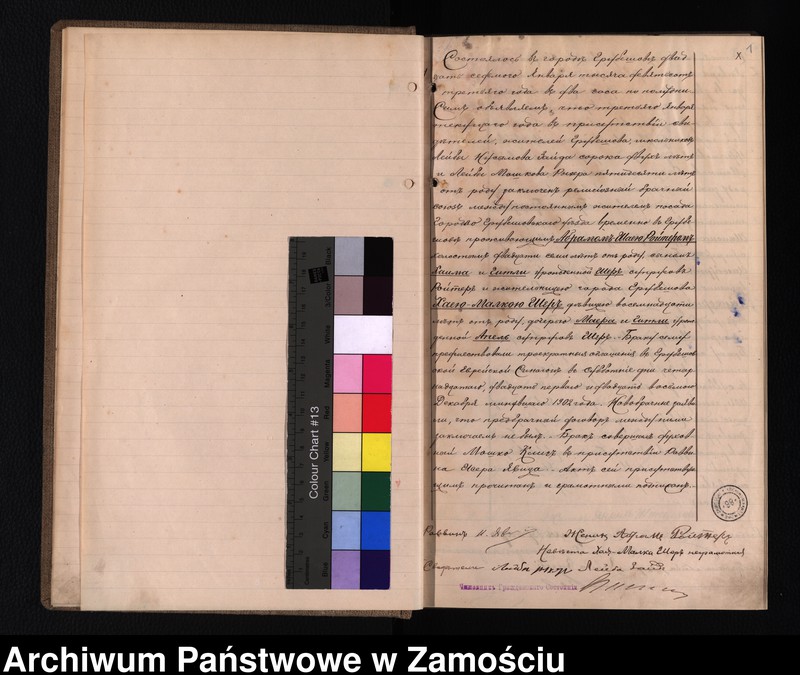 х 1
Состоялось въ городѣ Грубешовѣ двад
цать седьмого Января тысяча девятьсотъ
третьяго года въ два часа по полудни
Симъ объявляемъ, что третьяго Января
текущаго года въ присутствіи сви
дѣтелей, жителей Грубешова,
Лейбы Зайда сорока двухъ лѣтъ
и Лейбы Мошкова пятидесяти лѣтъ
отъ роду заключенъ религіозный брачный
союзъ между постояннымъ жителемъ посада
Городло Грубешовскаго уѣзда временно въ Грубе
шовѣ проживающимъ Абрамомъ Шаею Ройтеромъ
холостымъ двадцати семи лѣтъ отъ роду, сыномъ
Хаима и Ентли урожденной Шеръ супруговъ
Ройтеръ и жительницею города Грубешова
Хаею-Малкою Шеръ, дѣвицею восемнадцати
лѣтъ отъ роду, дочерью Меера и Ентли урож
денной Апель супруговъ Шеръ. Браку сему
предшествовали троекратныя оглашенія въ Грубешов
ской Еврейской Синагогѣ въ субботніе дни четыр
надцатаго, двадцать перваго и двадцать восьмого
Декабря минувшаго 1902 года. Новобрачные заяви
ли, что предбрачный договоръ между ними
заключаемъ не былъ. Бракъ совершилъ духов
ный Мошко въ присутствіи Равви
на. Актъ сей присутствую
щимъ прочитанъ и грамотными подписанъ.
Раввинъ Женихъ Абрамъ Ройтеръ
Невѣста Хая-Малка Шеръ неграмотная
Свидѣтели Лейба Лейба Зайдъ
Чиновникъ Гражданскаго Состоянія
Colour Chart #13
Black
3/Color
White
Magenta
Red
Yellow
Green
Cyan
Blue
Archiwum Państwowe w Zamościu